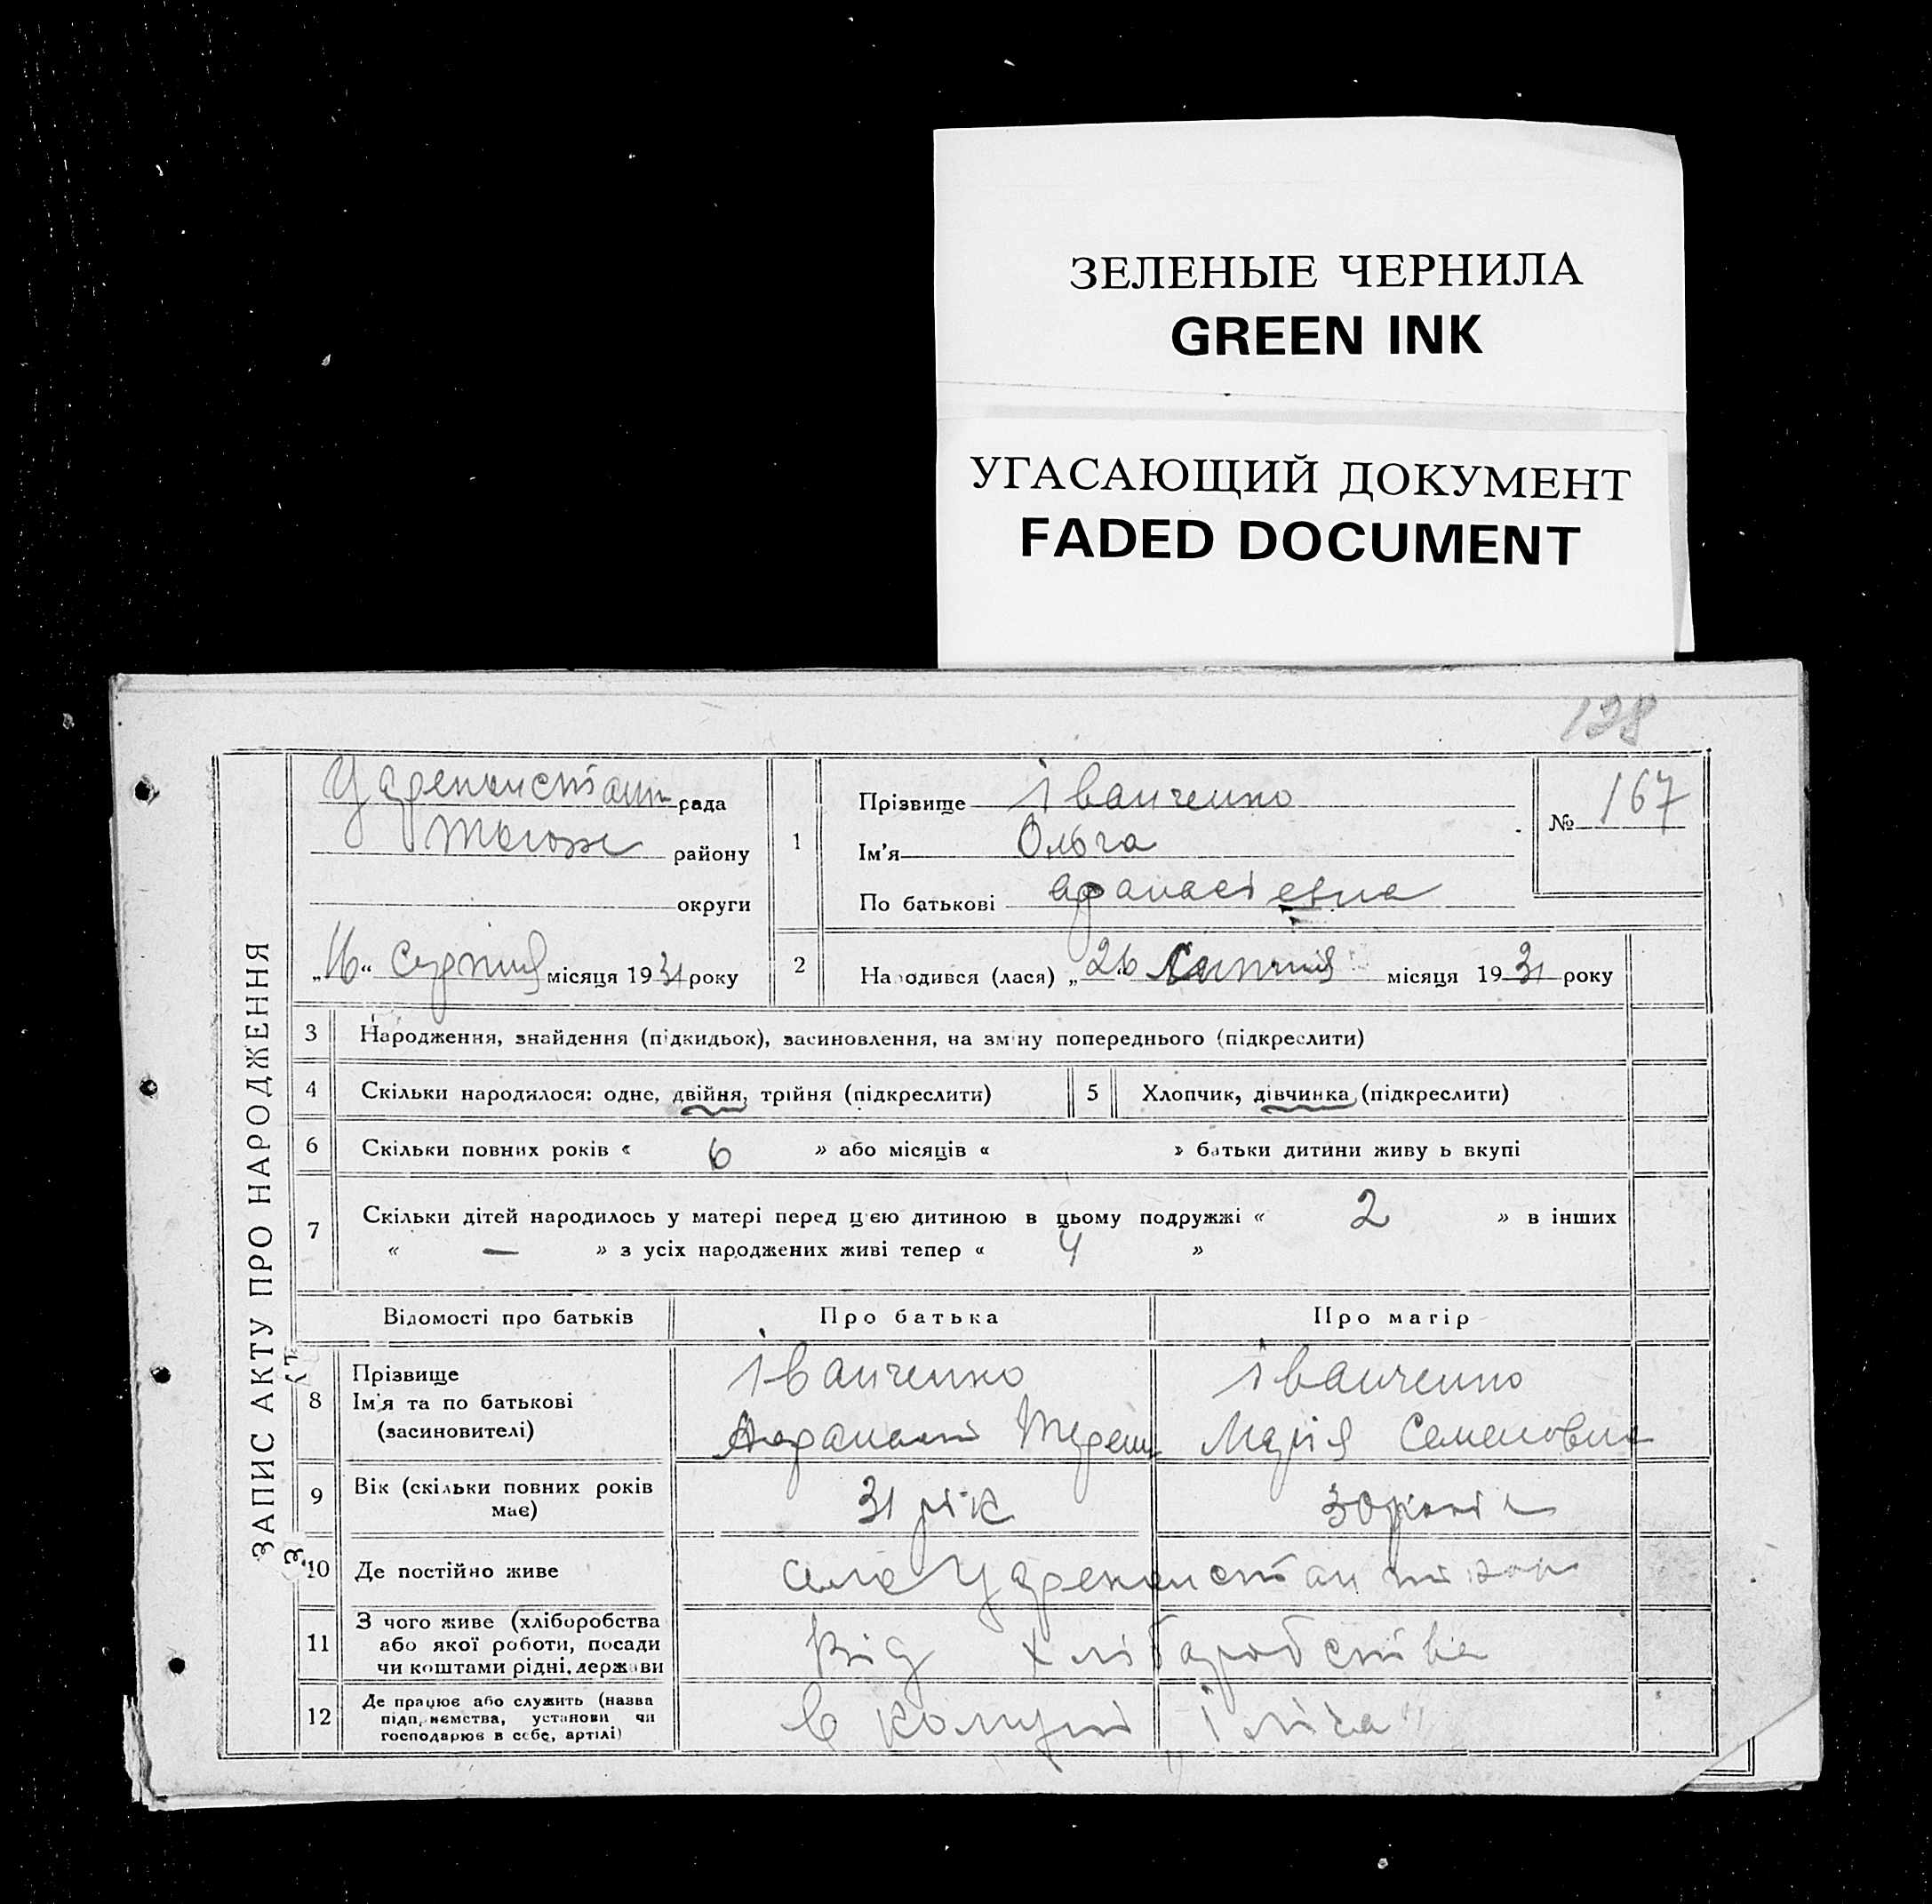 ЗЕЛЕНЫЕ ЧЕРНИЛА
GREEN INK
УГАСАЮЩИЙ ДОКУМЕНТ
FADED DOCUMENT
128
ЗАПИС АКТУ ПРО НАРОДЖЕННЯ
рада
району
округи
„16“ серпня місяця 1931 року
1
Прізвище Іванченко
Ім'я Ольга
По батькові Афанасієвна
№ 167
2
Народився (лася) „26 Липня місяця 1931 року
3 Народження, знайдення (підкидьок), засиновлення, на зміну попереднього (підкреслити)
4 Скільки народилося: одне, двійня, трійня (підкреслити)
5 Хлопчик, дівчинка (підкреслити)
6 Скільки повних років « 6 » або місяців « » батьки дитини живуть вкупі
7 Скільки дітей народилось у матері перед цією дитиною в цьому подружжі « 2 » в інших
« — » з усіх народжених живі тепер « 4 »
Відомості про батьків Про батька Про матір
8 Прізвище
Ім'я та по батькові
(засиновителі)
Іванченко
Іванченко
Марія Семеновна
9 Вік (скільки повних років
має)
31 рік
30
10 Де постійно живе
село
11 З чого живе (хліборобства
або якої роботи, посади
чи коштами рідні, держави
Від хліборобства
12 Де працює або служить (назва
підприємства, установи чи
господарює в себе, артілі)
в комуні „Ілліча"